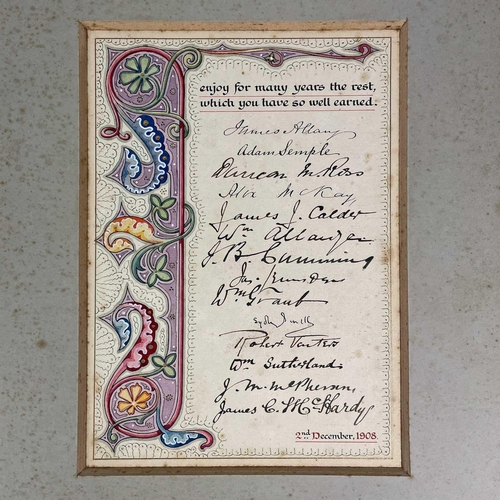 enjoy for many years the rest,
which you have so well earned.
James
Adam Semple
Duncan McRoss
Alex McKay
James J. Calder
Wm
J. B. Cumming
Jas.
Wm Traub
Sydney Smith
Robert
Wm Sutherland
J. M. McPherson
James C. McHardy
2nd December, 1908.